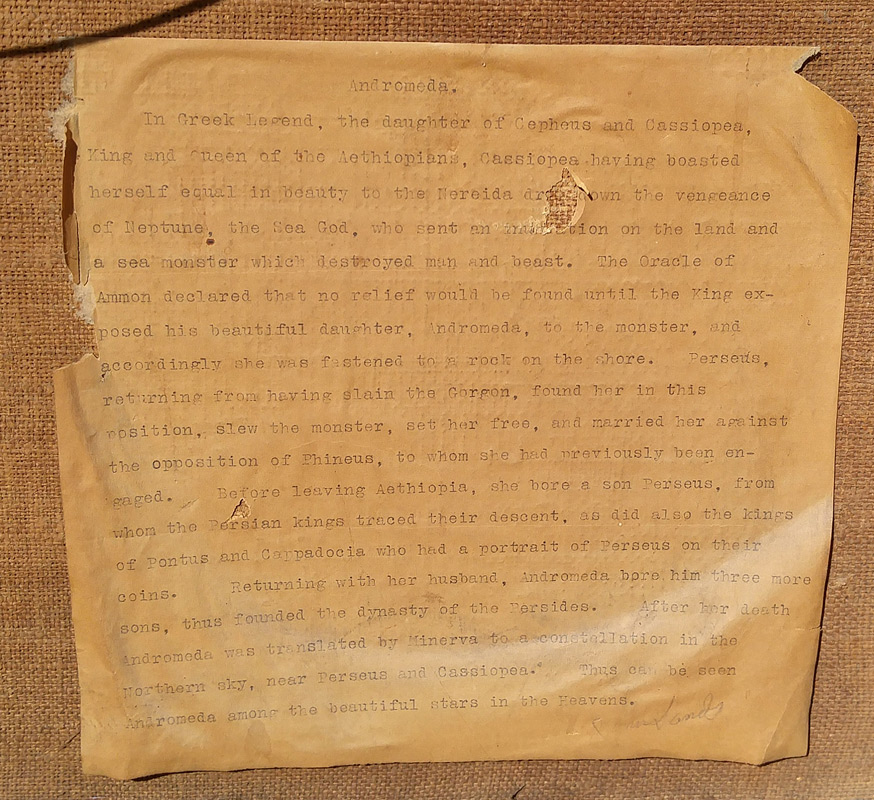 Andromeda.
In Greek Legend, the daughter of Cepheus and Cassiopea,
King and Queen of the Aethiopians, Cassiopea having boasted
herself equal in beauty to the Nereida down the vengeance
of Neptune, the Sea God, who sent an on the land and
a sea monster which destroyed man and beast. The Oracle of
Ammon declared that no relief would be found until the King ex-
posed his beautiful daughter, Andromeda, to the monster, and
accordingly she was fastened to a rock on the shore. Perseus,
returning from having slain the Gorgon, found her in this
position, slew the monster, set her free, and married her against
the opposition of Phineus, to whom she had previously been en-
gaged. Before leaving Aethiopia, she bore a son Perseus, from
whom the Persian kings traced their descent, as did also the kings
of Pontus and Cappadocia who had a portrait of Perseus on their
coins. Returning with her husband, Andromeda bore him three more
sons, thus founded the dynasty of the Persides. After her death
Andromeda was translated by Minerva to a constellation in the
Northern sky, near Perseus and Cassiopea. Thus can be seen
Andromeda among the beautiful stars in the Heavens.